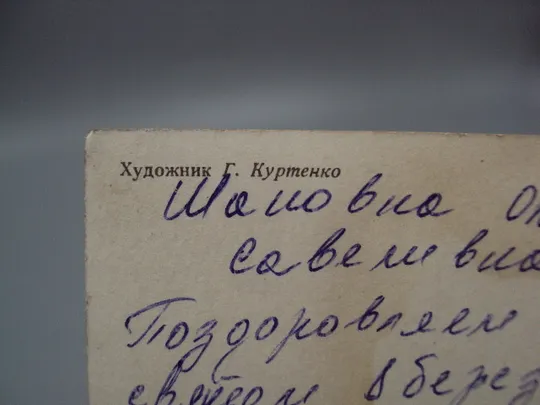 Художник Г. Куртенко
Шановна Ол
Савеливна
Поздоровляем
святом 8 берез